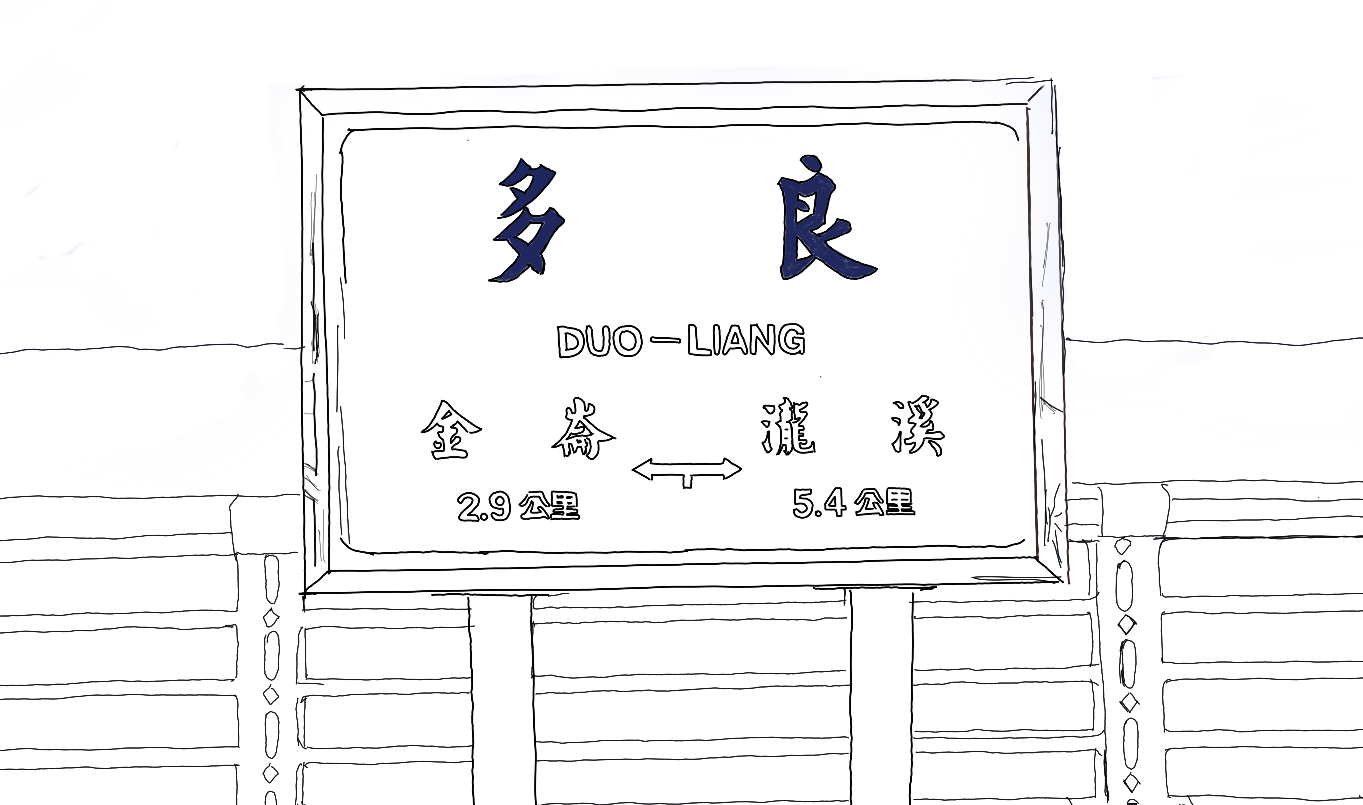 多良
DUO-LIANG
金崙 瀧溪
2.9公里 5.4公里